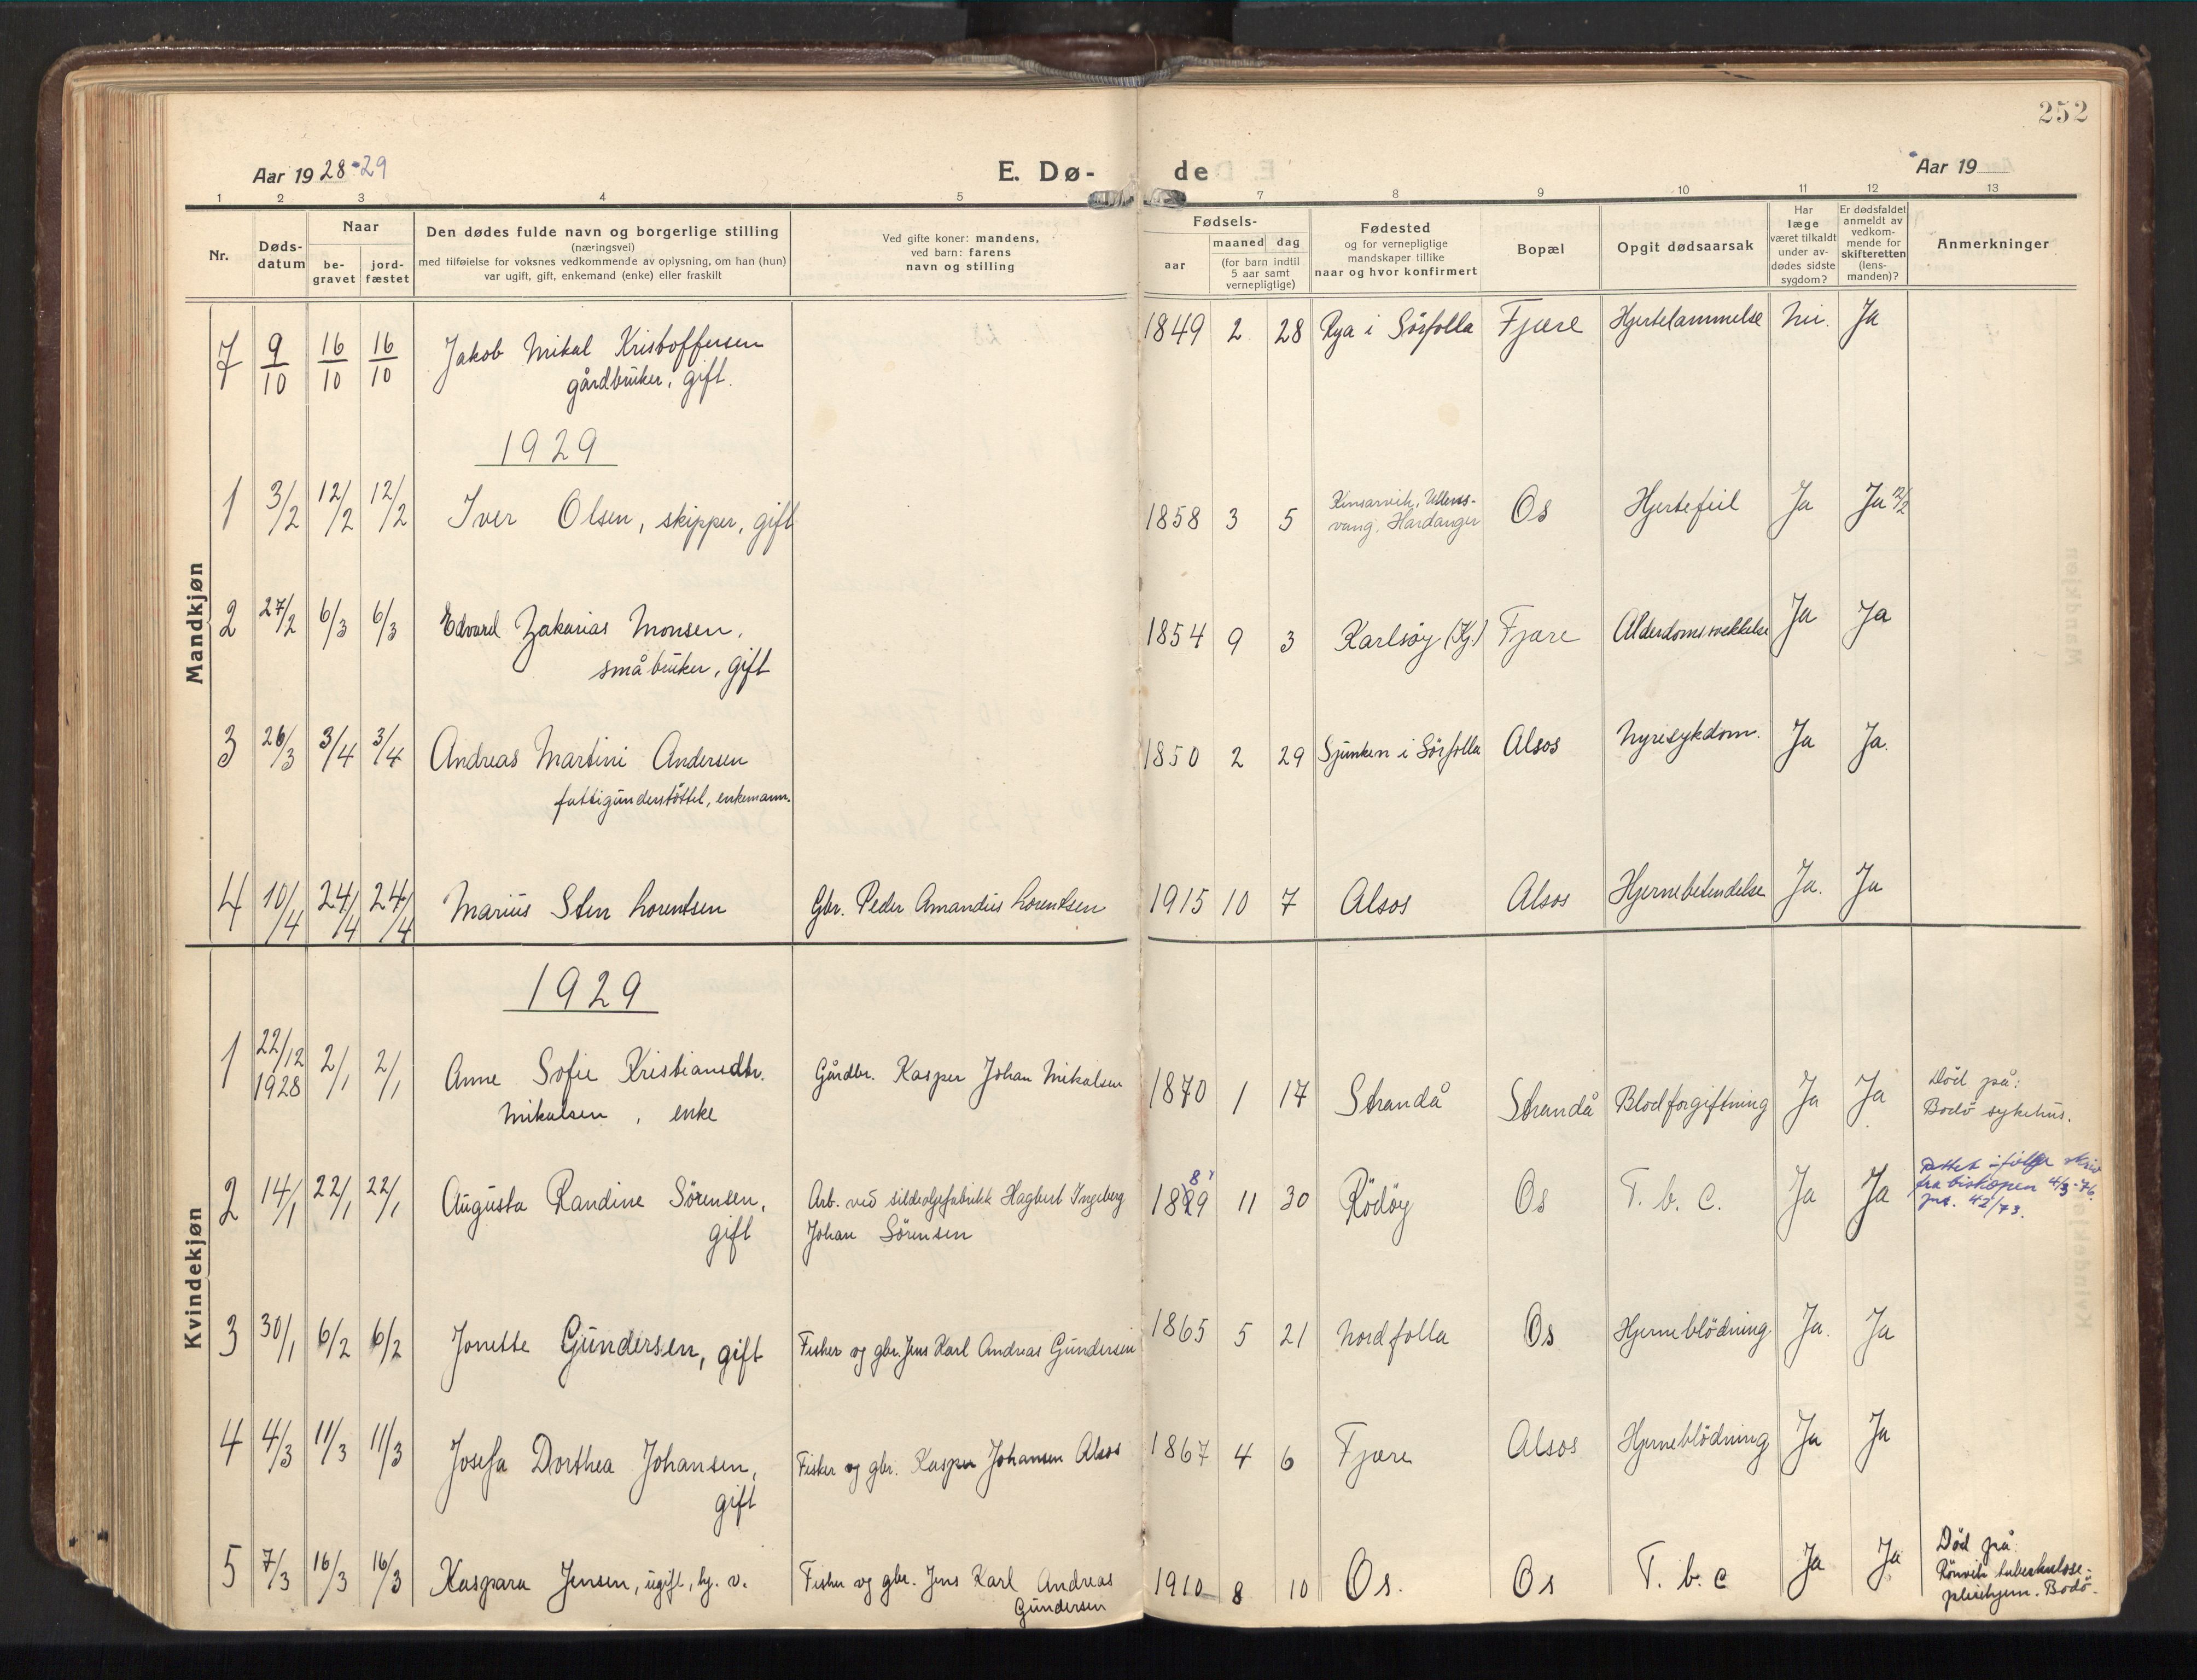 252
Aar 19 28-29 E. Dø- de Aar 19
1 2 3 4 5 7 8 9 10 11 12 13
Nr.
Døds-
datum
Naar
be-
gravet
jord-
fæstet
Den dødes fulde navn og borgerlige stilling
(næringsvei)
med tilføielse for voksnes vedkommende av oplysning, om han (hun)
var ugift, gift, enkemand (enke) eller fraskilt
Ved gifte koner: mandens,
ved barn: farens
navn og stilling
Fødsels-
aar
maaned dag
(for barn indtil
5 aar samt
vernepligtige)
Fødested
og for vernepligtige
mandskaper tillike
naar og hvor konfirmert
Bopæl
Opgit dødsaarsak
Har
læge
været tilkaldt
under av-
dødes sidste
sygdom?
Er dødsfaldet
anmeldt av
vedkom-
mende for
skifteretten
(lens-
manden)?
Anmerkninger
Mandkjøn
7 9/10 16/10 16/10 Jakob Mikal Kristoffersen 1849 2 28 Rya i Sörfolla Fjære Hjertelammelse Nei. Ja
gårdbruker, gift.
1929
1 3/2 12/2 12/2 Iver Olsen, skipper, gift 1858 3 5 Kinsarvik, Ullens-
vang, Hardanger Os Hjertefeil Ja Ja 12/2
2 27/2 6/3 6/3 Edvard Zakarias Monsen, 1854 9 3 Karlsøy (Kj.) Fjære Alderdomsvekkelse Ja Ja
småbruker, gift
3 26/3 3/4 3/4 Andreas Martini Andersen 1850 2 29 Sjunken i Sörfolla Alsos Nyresykdom. Ja Ja.
fattigunderstöttet, enkemann.
4 10/4 24/4 24/4 Marius Sten Lorentsen Gbr. Peder Amandus Lorentsen 1915 10 7 Alsos Alsos Hjernebetendelse Ja. Ja
Kvindekjøn
1929
1 22/12 1928 2/1 2/1 Anne Sofie Kristiansdtr. Gårdbr. Kasper Johan Mikalsen 1870 1 17 Strandå Strandå Blodforgiftning Ja Ja Död på:
Mikalsen, enke Bodö sykehus.
2 14/1 22/1 22/1 Augusta Randine Sörensen, Arb. ved sildolgefabrikk Hagbert Ingeberg 1889 11 30 Rödöy Os T. b. c. Ja Ja Rettet ifölge skriv
fra biskopen 4/3-76.
jnr. 42/73.
gift Johan Sörensen
3 30/1 6/2 6/2 Jonette Gundersen, gift Fisker og gbr. Jens Karl Andreas Gundersen 1865 5 21 Nordfolla Os Hjerneblödning Ja. Ja
4 4/3 11/3 11/3 Josefa Dorthea Johansen, Fisker og gbr. Kasper Johansen Alsos 1867 4 6 Fjære Alsos Hjerneblödning Ja Ja
gift
5 7/3 16/3 16/3 Kaspara Jensen, ugift, hj. v. Fisker og gbr. Jens Karl Andreas 1910 8 10 Os. Os T. b. c Ja Ja Död på
Gundersen
Rönvik tuberkulose-
pleiehjem. Bodö.